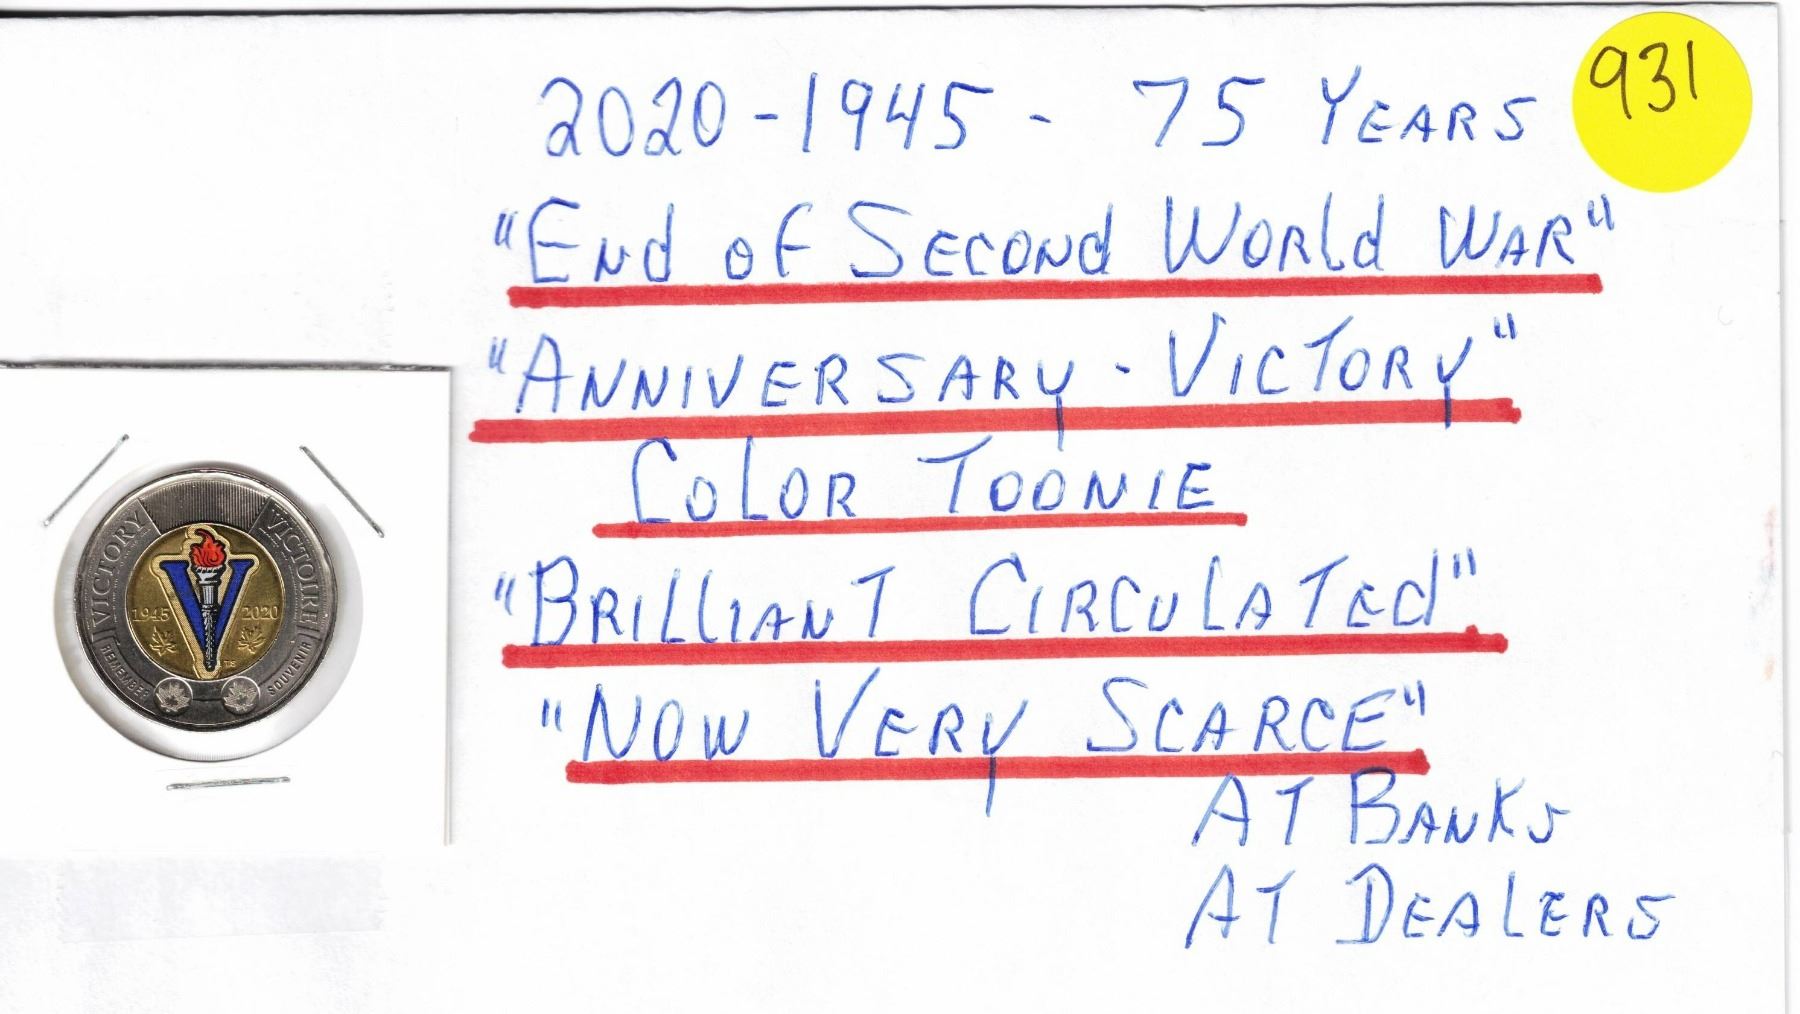 931
2020 - 1945 - 75 YEARS
"End of Second World War"
"Anniversary - Victory"
Color Toonie
"Brilliant Circulated"
"Now Very Scarce"
At Banks
At Dealers
VICTORY
VICTOIRE
1945
2020
REMEMBER
SOUVENIR
TS